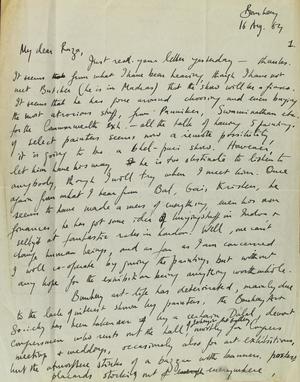 Bombay
16 Aug. 64
1.
My dear Raza,
Just recd. your letter yesterday — thanks.
It seems from what I have been hearing, though I have not
met Butcher (he is in Madras) that the show will be a fiasco.
It seems that he has gone around choosing and even buying
the most atrocious stuff, from Panniker, Swaminathan etc.
for the Commonwealth Exh. — all the talk of having 5 paintings
of select painters seems now a remote possibility,
it is going to be a bhel-puri show. However,
let him have his way he is too obstinate to listen to
anybody, though I will try when I meet him. Once
again from what I hear from Bal, Gai, Krishen, he
seems to have made a mess of everything, even his own
finances, he has got some idea of buying stuff in India &
selling at fantastic rates in London! Well, one can't
change human beings, and as far as I am concerned
I will co-operate by giving the paintings, but without
any hope for the exhibition being anything worthwhile.
Bombay art-life has deteriorated, mainly due
to the lack of interest shown by painters, the Bombay Art
Society has been taken over by a certain Dalal, devout
congressman who rents out the hall mostly for Congress
meetings & weddings, occasionally also for art exhibitions,
but the atmosphere stinks of a bazaar with banners, posters
placards sticking out everywhere